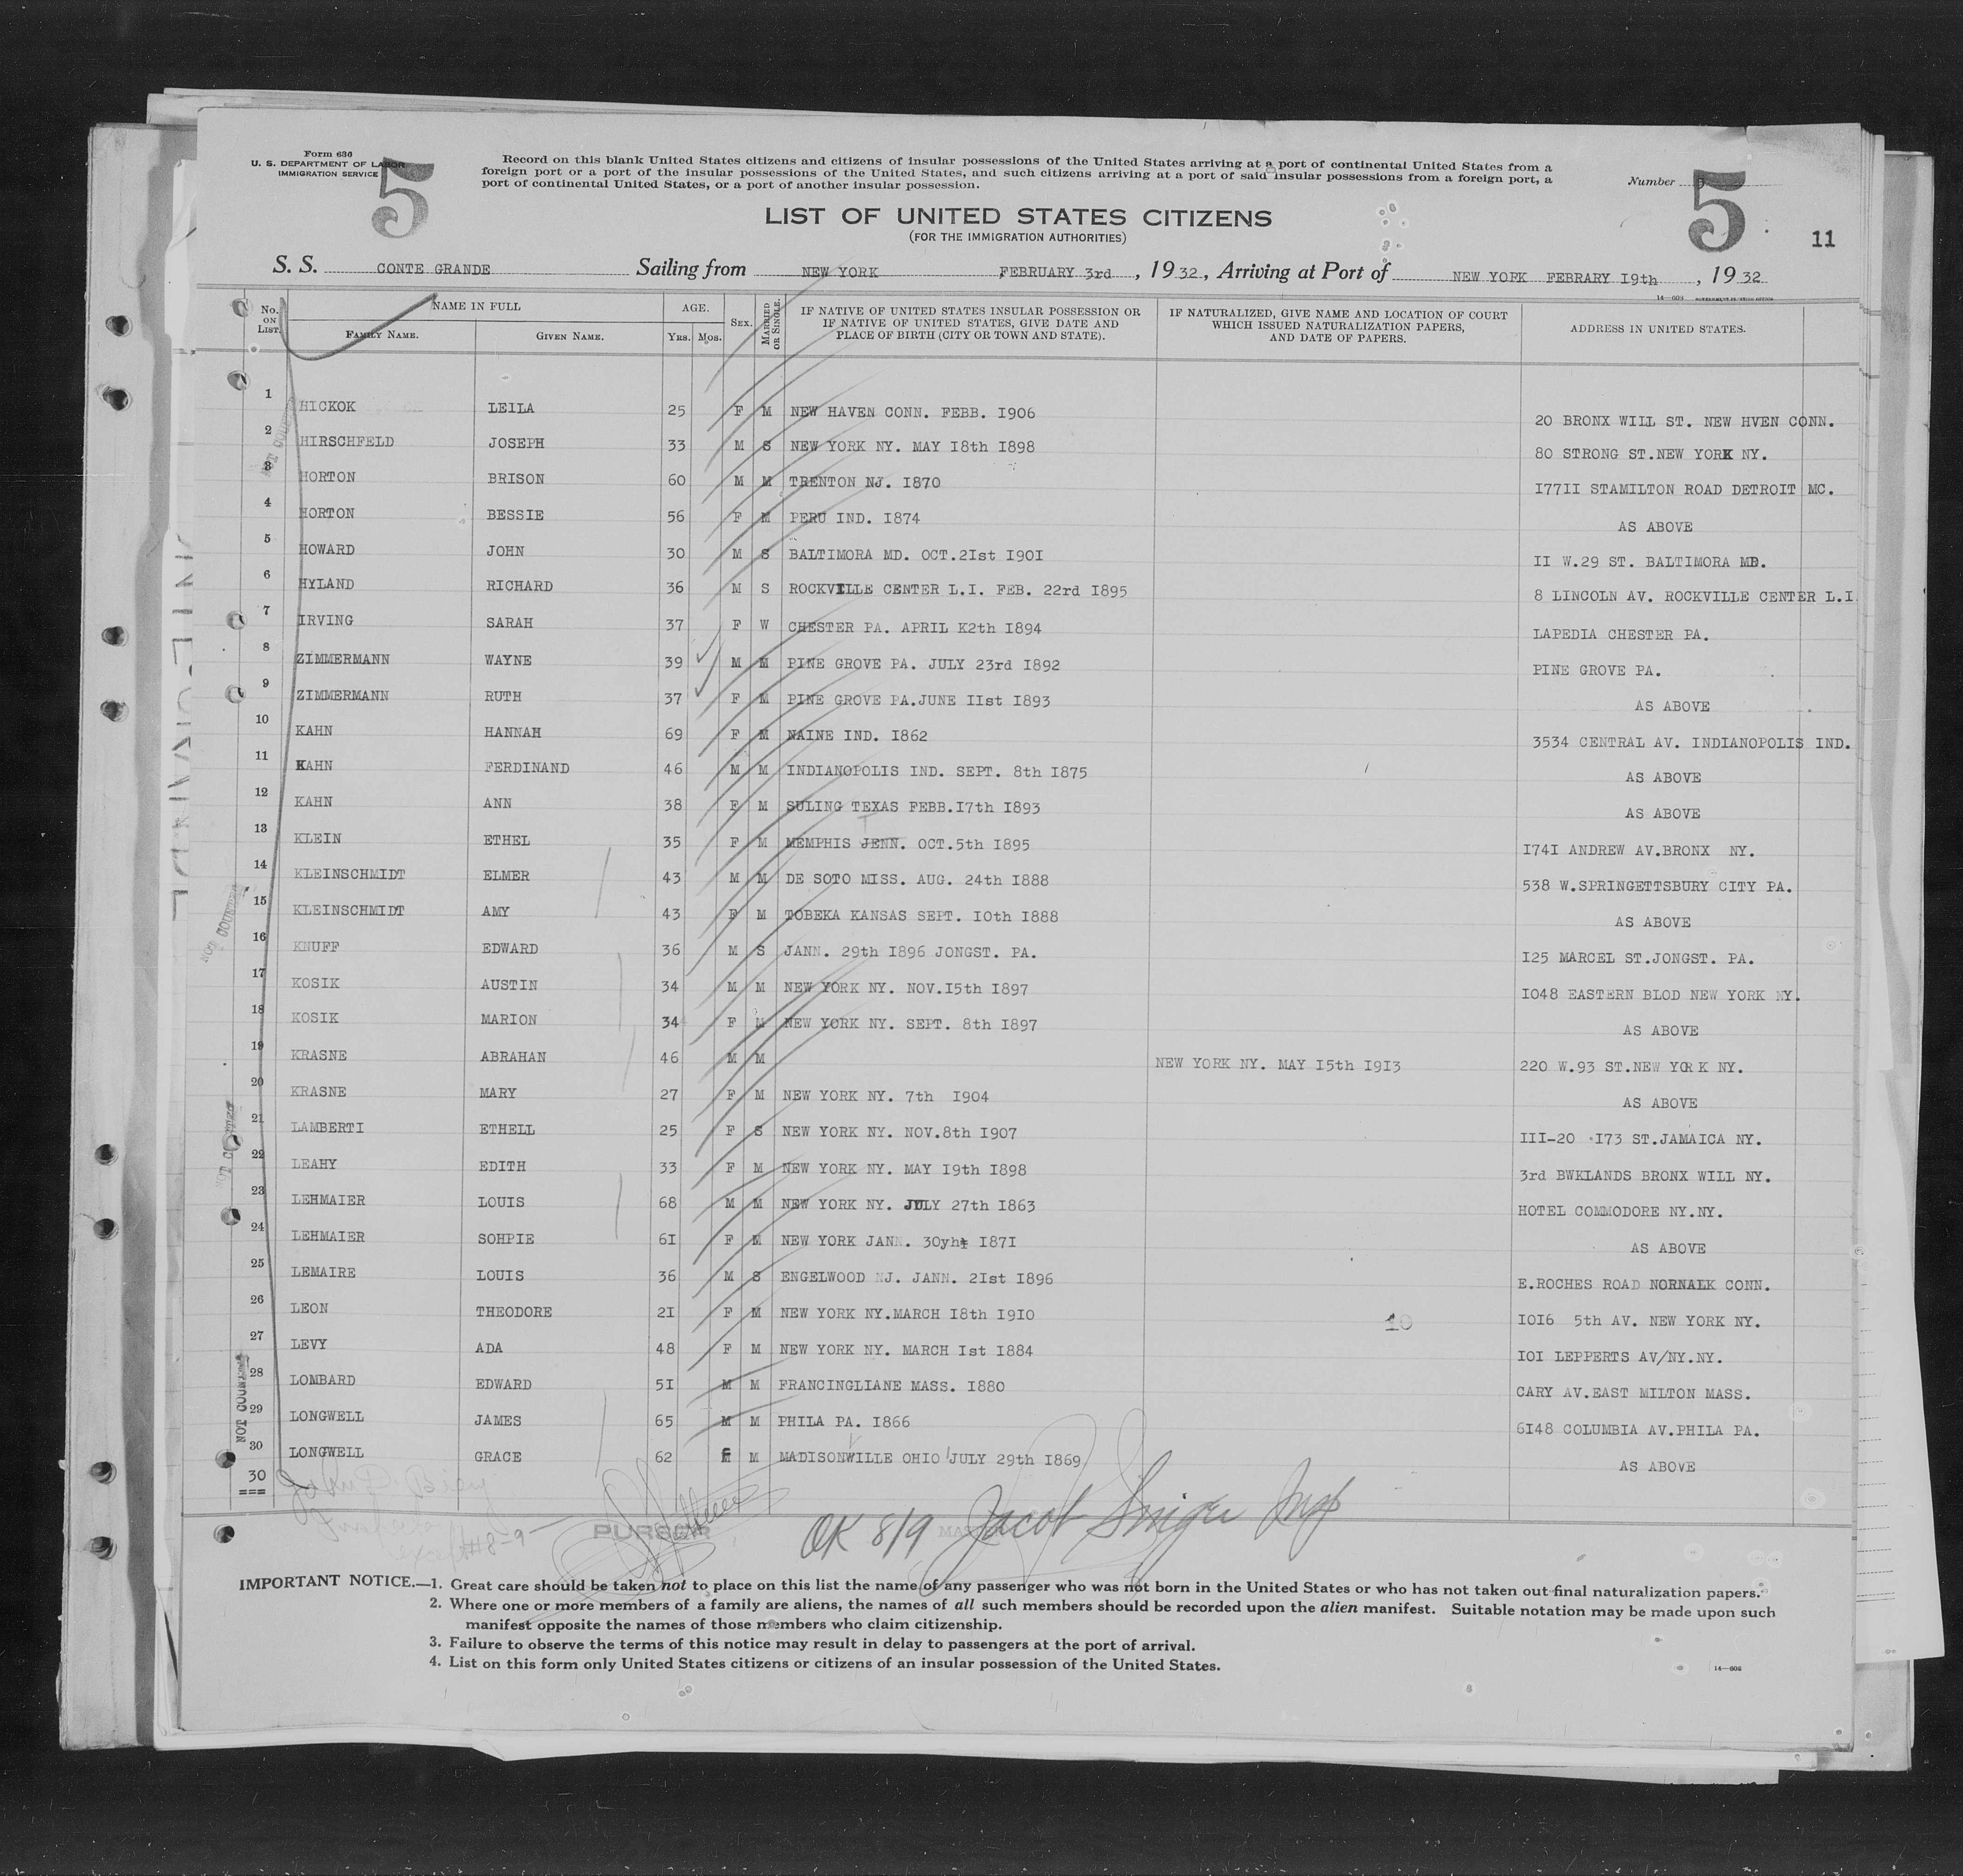 Form 636
U. S. DEPARTMENT OF LABOR
IMMIGRATION SERVICE
5
Record on this blank United States citizens and citizens of insular possessions of the United States arriving at a port of continental United States from a
foreign port or a port of the insular possessions of the United States, and such citizens arriving at a port of said insular possessions from a foreign port, a
port of continental United States, or a port of another insular possession.
Number 5
5
11
LIST OF UNITED STATES CITIZENS
(FOR THE IMMIGRATION AUTHORITIES)
S. S. CONTE GRANDE Sailing from NEW YORK FEBRUARY 3rd, 1932, Arriving at Port of NEW YORK FEBRARY I9th, 1932
No. ON LIST. NAME IN FULL FAMILY NAME. GIVEN NAME. AGE. YRS. MOS. SEX. MARRIED OR SINGLE. IF NATIVE OF UNITED STATES INSULAR POSSESSION OR IF NATIVE OF UNITED STATES, GIVE DATE AND PLACE OF BIRTH (CITY OR TOWN AND STATE). IF NATURALIZED, GIVE NAME AND LOCATION OF COURT WHICH ISSUED NATURALIZATION PAPERS, AND DATE OF PAPERS. ADDRESS IN UNITED STATES.
1 HICKOK LEILA 25 F M NEW HAVEN CONN. FEBB. I906 20 BRONX WILL ST. NEW HVEN CONN.
2 HIRSCHFELD JOSEPH 33 M S NEW YORK NY. MAY I8th I898 80 STRONG ST.NEW YORK NY.
3 HORTON BRISON 60 M M TRENTON NJ. I870 I77II STAMILTON ROAD DETROIT MC.
4 HORTON BESSIE 56 F M PERU IND. I874 AS ABOVE
5 HOWARD JOHN 30 M S BALTIMORA MD. OCT.2Ist I90I II W.29 ST. BALTIMORA MD.
6 HYLAND RICHARD 36 M S ROCKVILLE CENTER L.I. FEB. 22rd I895 8 LINCOLN AV. ROCKVILLE CENTER L.I
7 IRVING SARAH 37 F W CHESTER PA. APRIL K2th I894 LAPEDIA CHESTER PA.
8 ZIMMERMANN WAYNE 39 M M PINE GROVE PA. JULY 23rd I892 PINE GROVE PA.
9 ZIMMERMANN RUTH 37 F M PINE GROVE PA.JUNE IIst I893 AS ABOVE
10 KAHN HANNAH 69 F M NAINE IND. I862 3534 CENTRAL AV. INDIANOPOLIS IND.
11 KAHN FERDINAND 46 M M INDIANOPOLIS IND. SEPT. 8th I875 AS ABOVE
12 KAHN ANN 38 F M SULING TEXAS FEBB.I7th I893 AS ABOVE
13 KLEIN ETHEL 35 F M MEMPHIS JENN. OCT.5th I895 I74I ANDREW AV.BRONX NY.
14 KLEINSCHMIDT ELMER 43 M M DE SOTO MISS. AUG. 24th I888 538 W.SPRINGETTSBURY CITY PA.
15 KLEINSCHMIDT AMY 43 F M TOBEKA KANSAS SEPT. I0th I888 AS ABOVE
16 KNUFF EDWARD 36 M S JANN. 29th I896 JONGST. PA. I25 MARCEL ST.JONGST. PA.
17 KOSIK AUSTIN 34 M M NEW YORK NY. NOV.I5th I897 I048 EASTERN BLOD NEW YORK NY.
18 KOSIK MARION 34 F M NEW YORK NY. SEPT. 8th I897 AS ABOVE
19 KRASNE ABRAHAN 46 M M NEW YORK NY. MAY I5th I9I3 220 W.93 ST.NEW YORK NY.
20 KRASNE MARY 27 F M NEW YORK NY. 7th I904 AS ABOVE
21 LAMBERTI ETHELL 25 F S NEW YORK NY. NOV.8th I907 III-20 I73 ST.JAMAICA NY.
22 LEAHY EDITH 33 F M NEW YORK NY. MAY I9th I898 3rd BWKLANDS BRONX WILL NY.
23 LEHMAIER LOUIS 68 M M NEW YORK NY. JULY 27th I863 HOTEL COMMODORE NY.NY.
24 LEHMAIER SOHPIE 6I F M NEW YORK JANN. 30yht I87I AS ABOVE
25 LEMAIRE LOUIS 36 M S ENGELWOOD NJ. JANN. 2Ist I896 E.ROCHES ROAD NORNALK CONN.
26 LEON THEODORE 2I F M NEW YORK NY.MARCH I8th I9I0 10 I0I6 5th AV. NEW YORK NY.
27 LEVY ADA 48 F M NEW YORK NY. MARCH Ist I884 I0I LEPPERTS AV/NY.NY.
28 LOMBARD EDWARD 5I M M FRANCINGLIANE MASS. I880 CARY AV.EAST MILTON MASS.
29 LONGWELL JAMES 65 M M PHILA PA. I866 6I48 COLUMBIA AV.PHILA PA.
30 LONGWELL GRACE 62 F M MADISONWILLE OHIO JULY 29th I869 AS ABOVE
30
===
NOT COUNTED
except #8-9
PURSER
OK 8/9 Jacob
IMPORTANT NOTICE.—1. Great care should be taken not to place on this list the name of any passenger who was not born in the United States or who has not taken out final naturalization papers.
2. Where one or more members of a family are aliens, the names of all such members should be recorded upon the alien manifest. Suitable notation may be made upon such
manifest opposite the names of those members who claim citizenship.
3. Failure to observe the terms of this notice may result in delay to passengers at the port of arrival.
4. List on this form only United States citizens or citizens of an insular possession of the United States.
14—608